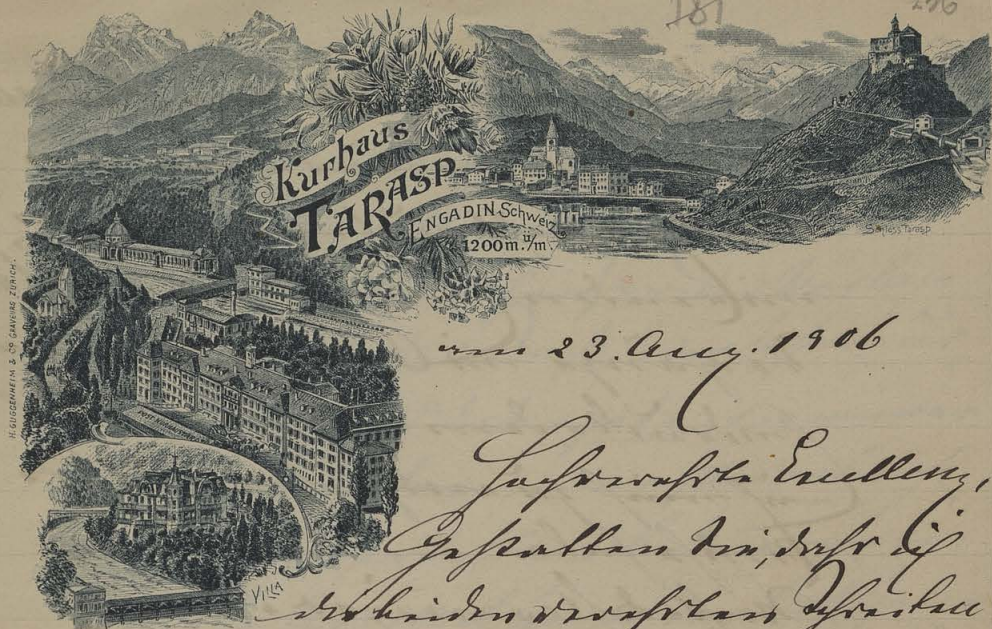 181
Kurhaus
TARASP
ENGADIN-Schweiz
1200 m. ü/m.
Schloss Tarasp
H. GUGGENHEIM & Co. GRAVEURS ZÜRICH.
VILLA
am 23. Aug. 1906
Hochverehrte Excellenz,
Gestatten Sie, daß ich
die beiden verehrten Schreiben